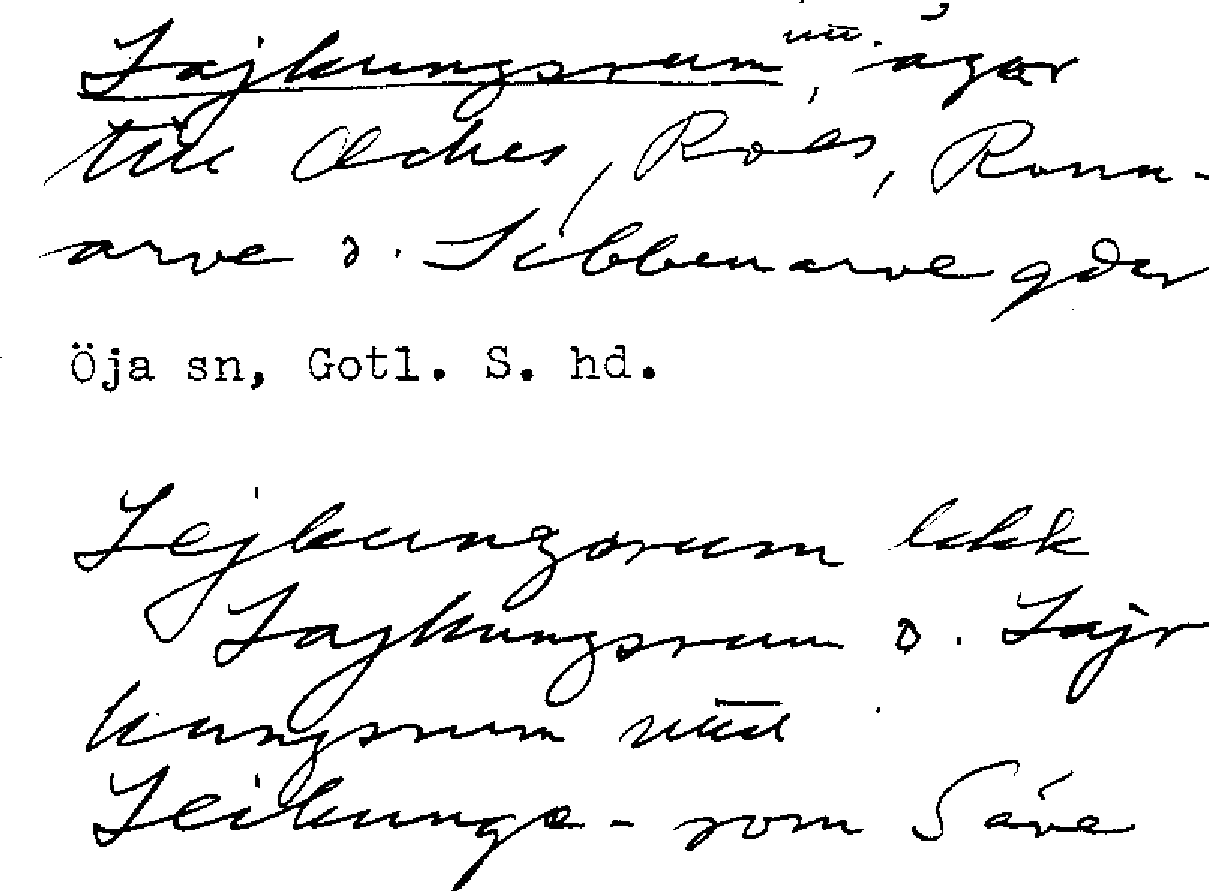 Lajkungsrum uu. ägor
till Océhes, Roes, Ronn-
arve o. Sibbenarve gdr
Öja sn, Gotl. S. hd.
Lejkungsrum
Lajkungsrum o. Lajr
kungsrum
Leikunge-rom Säve